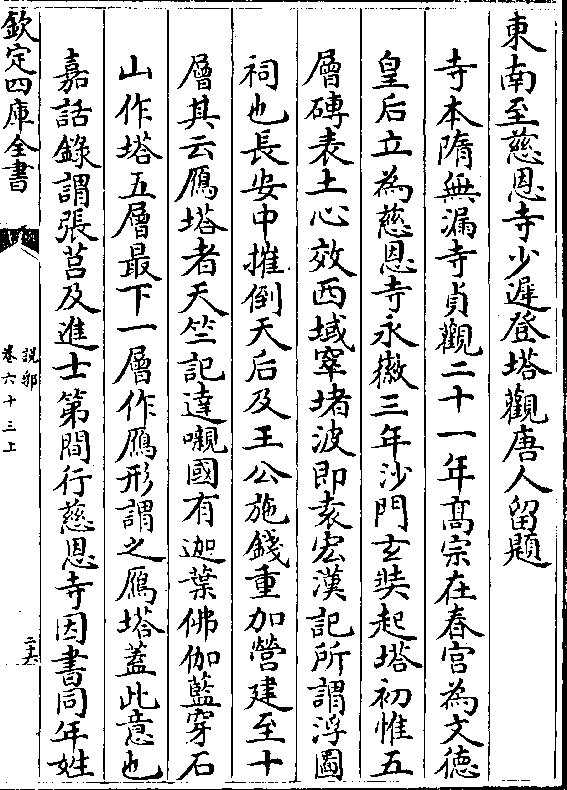 東南至慈恩寺少遲登塔觀唐人留題
寺本隋無漏寺貞觀二十一年髙宗在春宮為文德
皇后立為慈恩寺永徽三年沙門玄奘起塔初惟五
層磚表土心效西域窣堵波即袁宏漢記所謂浮圖
祠也長安中摧倒天后及王公施錢重加營建至十
層其云鴈塔者天竺記達嚫國有迦葉佛伽藍穿石
山作塔五層最下一層作鴈形謂之鴈塔蓋此意也
嘉話錄謂張莒及進士第間行慈恩寺因書同年姓
欽定四庫全書
說郛
卷六十三上
二六